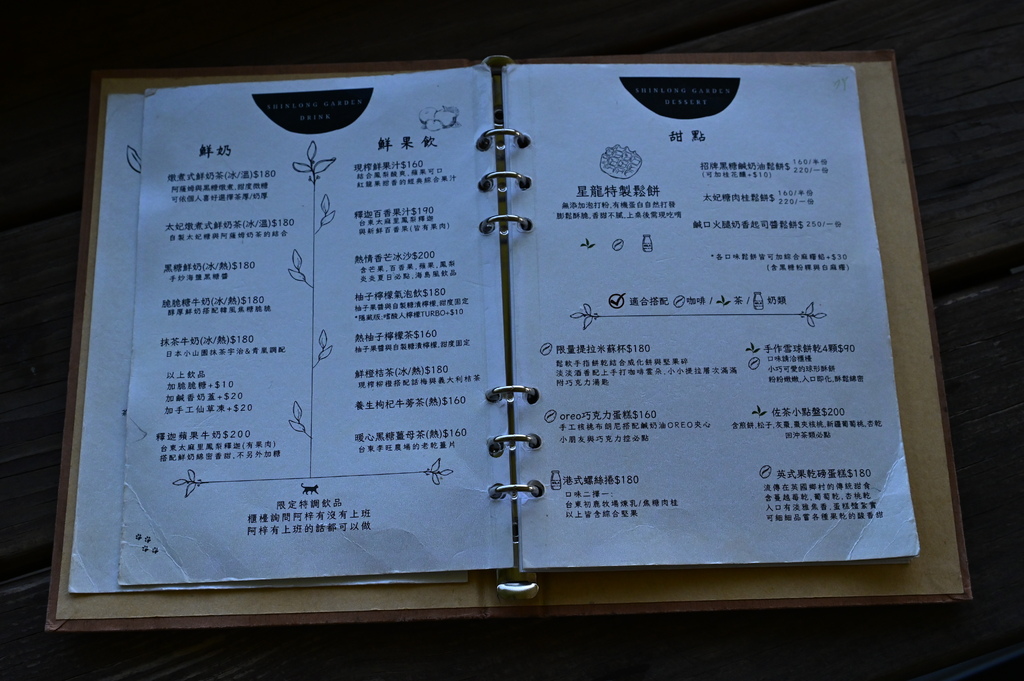 SHINLONG GARDEN
DRINK
鮮奶
燉煮式鮮奶茶(冰/溫)$180
阿薩姆與黑糖燉煮,甜度微糖
可依個人喜好選擇茶厚/奶厚
太妃燉煮式鮮奶茶(冰/溫)$180
自製太妃糖與阿薩姆奶茶的結合
黑糖鮮奶(冰/熱)$180
手炒海鹽黑糖醬
脆脆糖牛奶(冰/熱)$180
醇厚鮮奶搭配韓風焦糖脆脆
抹茶牛奶(冰/熱)$180
日本小山園抹茶宇治&青嵐調配
以上飲品
加脆脆糖+$10
加鹹香奶蓋+$20
加手工仙草凍+$20
釋迦蘋果牛奶$200
台東太麻里鳳梨釋迦(有果肉)
搭配鮮奶綿密香甜,不另外加糖
鮮果飲
現榨鮮果汁$160
結合鳳梨酸爽,蘋果可口
紅蘿果甜香的經典綜合果汁
釋迦百香果汁$190
台東太麻里鳳梨釋迦
與新鮮百香果(皆有果肉)
熱情香芒冰沙$200
含芒果,百香果,蘋果,鳳梨
炎炎夏日必點,海島風飲品
柚子檸檬氣泡飲$180
柚子果醬與自製糖漬檸檬,甜度固定
*隱藏版,嗜酸人檸檬TURBO+$10
熱柚子檸檬茶$160
柚子果醬與自製糖漬檸檬,甜度固定
鮮橙桔茶(熱)$180
現榨柳橙搭配話梅與義大利桔茶
養生枸杞牛蒡茶(熱)$160
暖心黑糖薑母茶(熱)$160
台東李旺農場的老乾薑片
限定特調飲品
櫃檯詢問阿梓有沒有上班
阿梓有上班的話都可以做
SHINLONG GARDEN
DESSERT
甜點
星龍特製鬆餅
無添加泡打粉,有機蛋白自然打發
膨鬆酥脆,香甜不膩,上桌後需現吃唷
招牌黑糖鹹奶油鬆餅$ 160/半份 220/一份
(可加桂花釀+$10)
太妃糖肉桂鬆餅$ 160/半份 220/一份
鹹口火腿奶香起司醬鬆餅$ 250/一份
*各口味鬆餅皆可加綜合麻糬船+$30
(含黑糖粉粿與白麻糬)
適合搭配 咖啡/ 茶/ 奶類
限量提拉米蘇杯$180
鬆軟手指餅乾結合威化餅與堅果碎
淡淡酒香配上手打咖啡雲朵,小小提拉層次滿滿
附巧克力湯匙
oreo巧克力蛋糕$160
手工核桃布朗尼搭配鹹奶油OREO夾心
小朋友與巧克力控必點
港式螺絲捲$180
口味二擇一:
台東初鹿牧場煉乳/焦糖肉桂
以上皆含綜合堅果
手作雪球餅乾4顆$90
口味請洽櫃檯
小巧可愛的球形酥餅
粉粉嫩嫩,入口即化,酥鬆綿密
佐茶小點盤$200
含煎餅,松子,友薑,棗夾核桃,新疆葡萄,杏乾
回沖茶類必點
英式果乾磅蛋糕$180
流傳在英國鄉村的傳統甜食
含蔓越莓乾,葡萄乾,杏桃乾
入口有淡雅焦香,蛋糕體紮實
可細細品嘗各種果乾的酸香甜